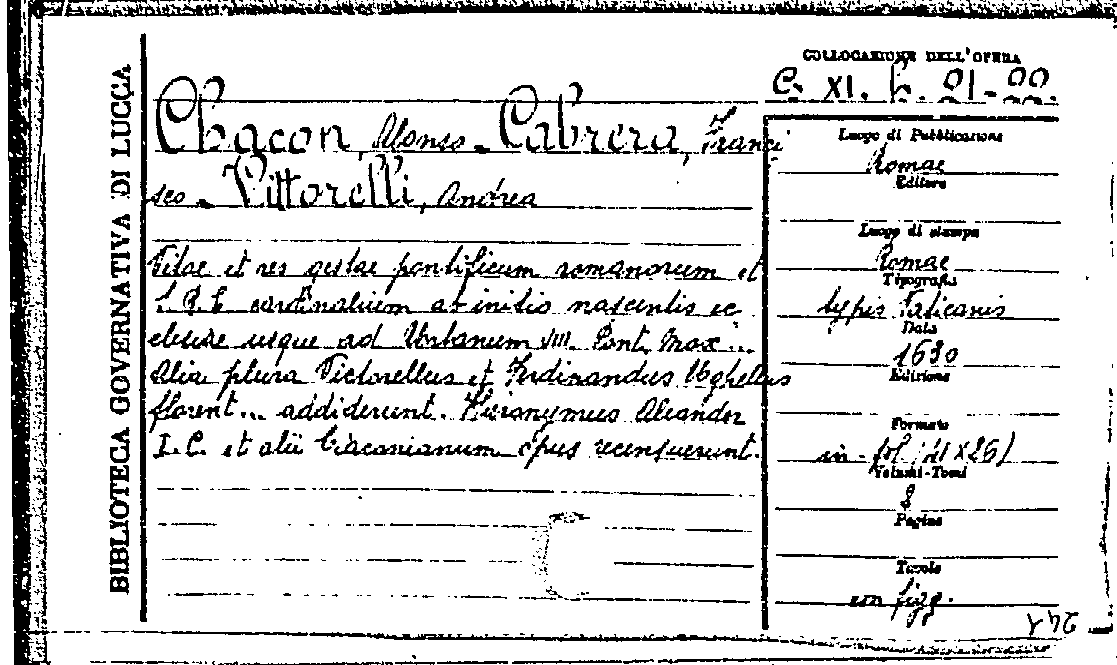 BIBLIOTECA GOVERNATIVA DI LUCCA
COLLOCAZIONE DELL'OPERA
C. XI. h. 21-22.
Chacon, Alonso - Cabrera, Franci
sco - Vittorelli, Andrea
Vitae et res gestae pontificum romanorum et
S. R. E. cardinalium ab initio nascentis ec
clesiae usque ad Urbanum VIII. Pont. Max...
Alia plura Victorellus et Ferdinandus Ughellus
florent... addiderunt. Hieronymus Aleander
I. C. et alii Ciaconianum opus recensuerunt.
Luogo di Pubblicazione
Romae
Editore
Luogo di stampa
Romae
Tipografia
typis Vaticanis
Data
1630
Edizione
Formato
in-fol (41 X 26)
Volumi-Tomi
2
Pagine
Tavole
con figg.